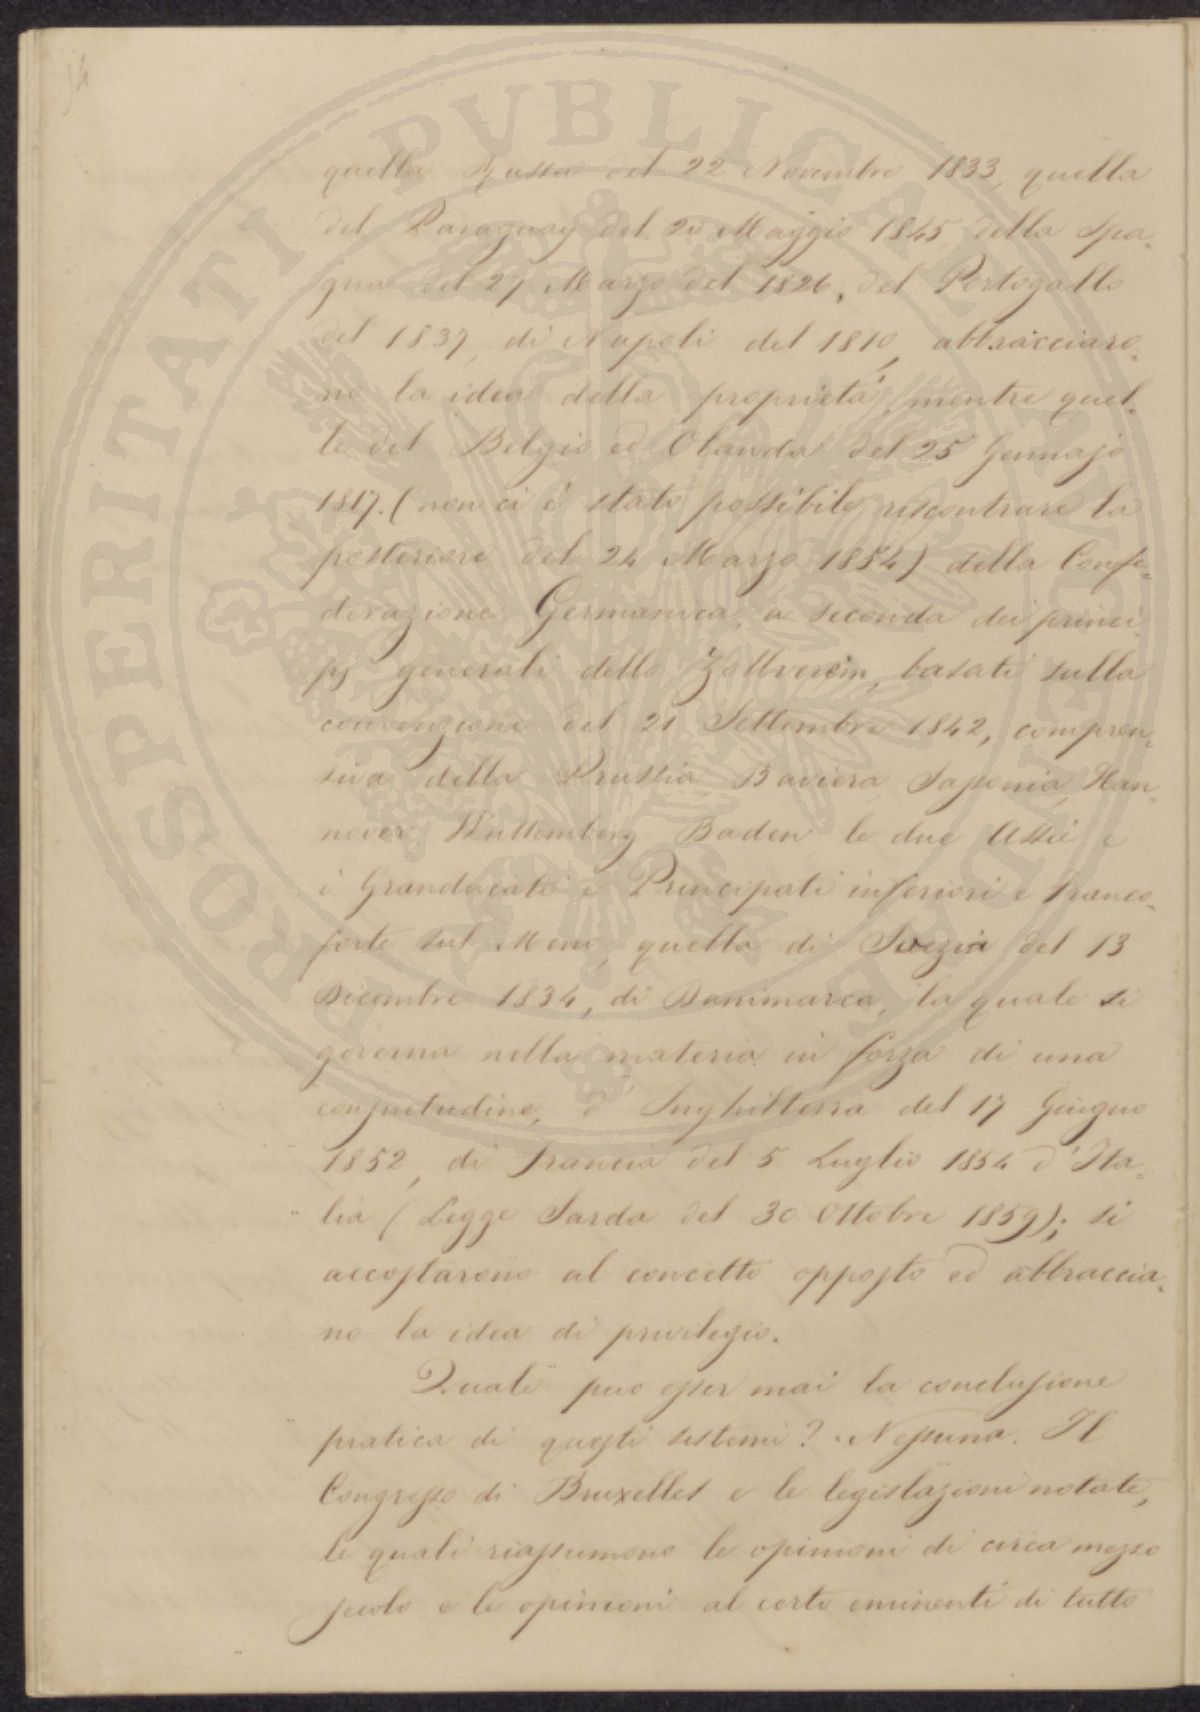 54
quella Russa del 22 Novembre 1833, quella
del Paraguay del 20 Maggio 1845, della Spa-
gna del 27 Marzo del 1826, del Portogallo
del 1837, di Napoli del 1810, abbracciaro-
no la idea della proprietá, mentre quel-
le del Belgio ed Olanda del 25 Gennajo
1817. (non ci é stato possibile riscontrare la
posteriore del 24 Marzo 1854) della Confe-
derazione Germanica, a seconda dei princi-
pj generali dello Zollverein, basati sulla
convenzione del 21 Settembre 1842, compren-
siva della Prussia, Baviera, Sassonia, Han-
nover, Wuttemberg Baden le due Assie e
i Granducati e Principati inferiori e Franco-
forte sul Meno, quella di Svezia del 13
Dicembre 1834, di Danimarca, la quale si
governa nella materia in forza di una
consuetudine, d'Inghilterra del 17 Giugno
1852, di Francia del 5 Luglio 1854 d'Ita-
lia (Legge Sarda del 30 Ottobre 1859); si
accostarono al concetto opposto ed abbraccia-
no la idea di privilegio.
Quale puo esser mai la conclusione
pratica di questi sistemi? Nessuna. Il
Congresso di Bruxelles e le legislazioni notate,
le quali riassumono le opinioni di circa mezzo
secolo e le opinioni al certo eminenti di tutto
PROSPERITATI PUBLICAE AUGENDAE